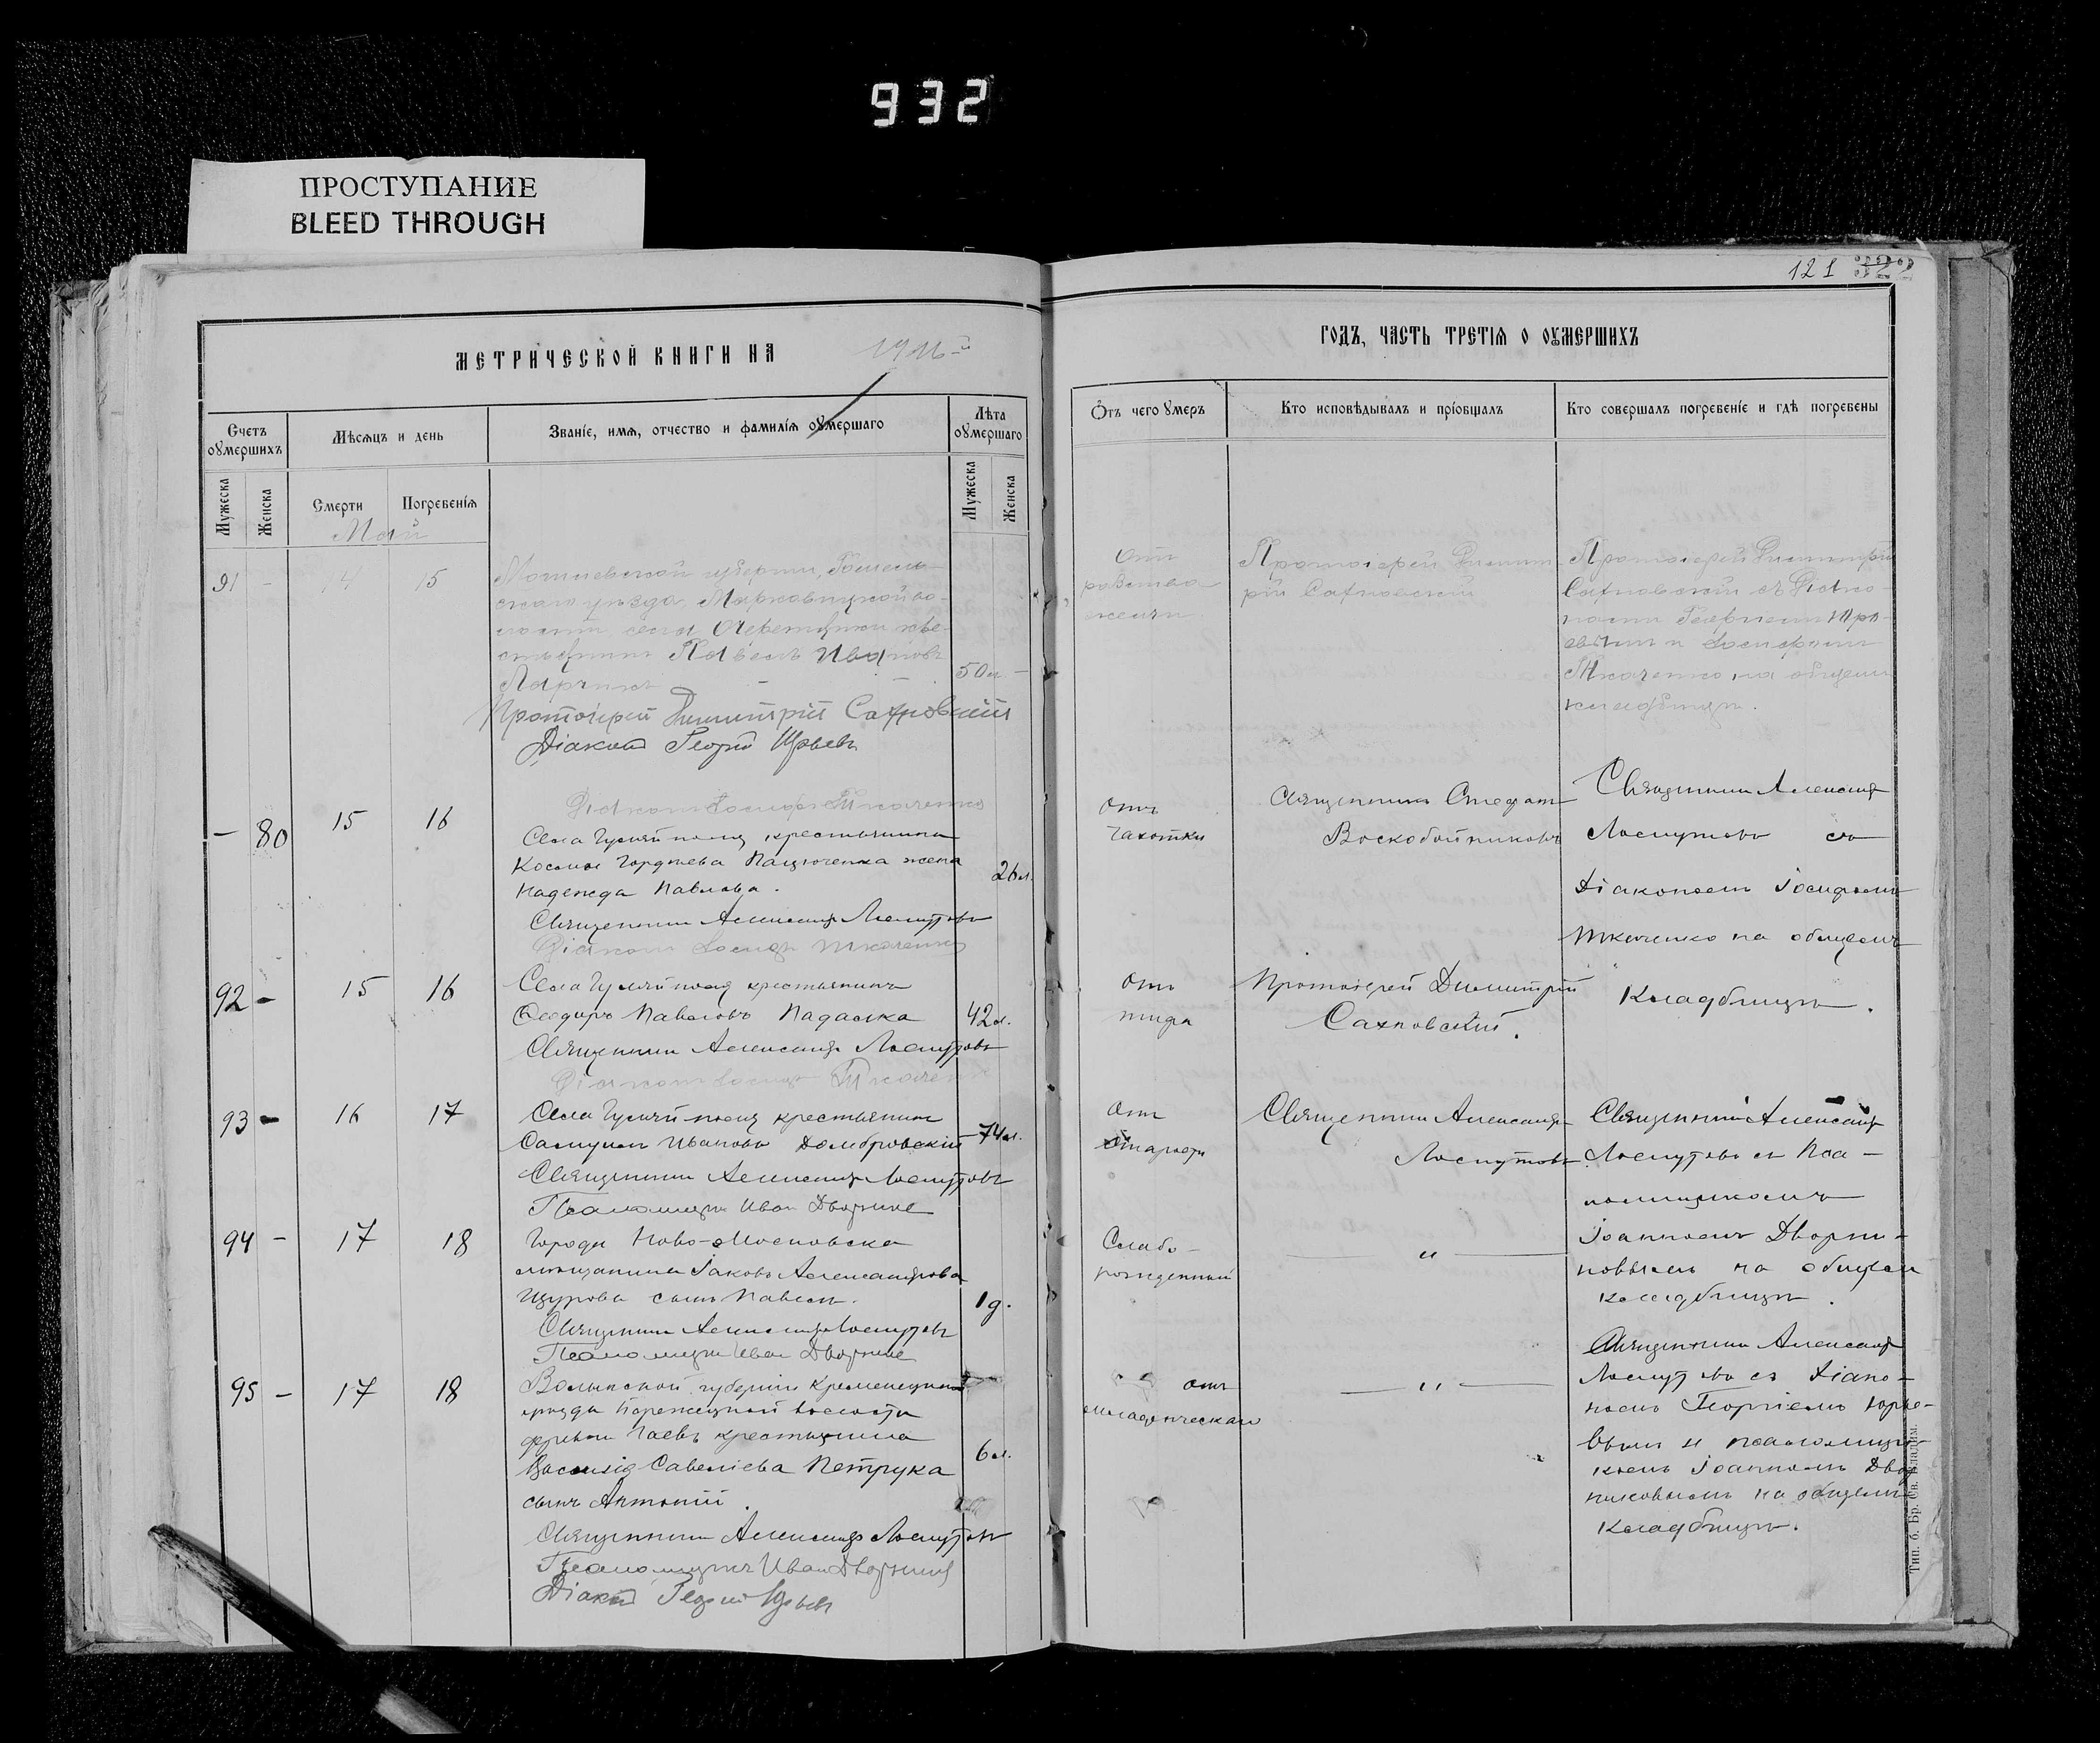 932
ПРОСТУПАНИЕ
BLEED THROUGH
121
МЕТРИЧЕСКОЙ КНИГИ НА 1916-й
ГОДЪ, ЧАСТЬ ТРЕТІЯ О ОУМЕРШИХЪ
Счетъ оумершихъ
Мѣсяцъ и день
Званіе, имя, отчество и фамилія оумершаго
Лѣта оумершаго
Отъ чего умеръ
Кто исповѣдывалъ и пріобщалъ
Кто совершалъ погребеніе и гдѣ погребены
Мужеска
Женска
Смерти
Погребенія
Мужеска
Женска
Май
91 - 14 15
Могилевской губерніи, Гомель-
скаго уѣзда, Марковицкой во-
лости, села
Павелъ Ивановъ
50 л. -
Протоіерей Димитрій Сахновскій
Діаконъ Георгій Юрьевъ
Отъ
Протоіерей Димит-
рій Сахновскій
Протоіерей Димитрій
Сахновскій съ Діако-
номъ Георгіемъ Юрь-
евымъ и Іосифомъ
Ткаченко, на общемъ
кладбищѣ.
Діаконъ Іосифъ Ткаченко
- 80 15 16
Села Гуляйполя крестьянина
Космы Гордѣева Пащенка жена
Надежда Павлова.
26 л.
Священникъ Александръ Лоскутовъ
Діаконъ Іосифъ Ткаченко
Отъ
чахотки
Священникъ Стефанъ
Воскобойниковъ
Священникъ Александръ
Лоскутовъ съ
Діакономъ Іосифомъ
Ткаченко на общемъ
Кладбищѣ.
92 - 15 16
Села Гуляйполя крестьянинъ
Ѳеодоръ Павловъ Падалка
42 л.
Священникъ Александръ Лоскутовъ
Діаконъ Іосифъ Ткаченко
Отъ
тифа
Протоіерей Димитрій
Сахновскій.
93 - 16 17
Села Гуляй-поля крестьянинъ
Самуилъ Ивановъ Домбровскій
74 л.
Священникъ Александръ Лоскутовъ
Псаломщикъ Иванъ Дворник
Отъ
старости
Священникъ Александръ
Лоскутовъ
Священникъ Александръ
Лоскутовъ съ Пса-
ломщикомъ
Іоанномъ Дворни-
ковымъ на общемъ
кладбищѣ.
94 - 17 18
Города Ново-Московска
мѣщанина Іакова Александрова
Щурова сынъ Павелъ.
1 д.
Священникъ Александръ Лоскутовъ
Псаломщикъ Иванъ Дворник
Слабо-
рожденный
"
95 - 17 18
Волынской губерніи Кременецкаго
уѣзда волости
деревни крестьянина
Василія Савеліева Петрука
сынъ Антоній.
6 л.
Священникъ Александръ Лоскутовъ
Псаломщикъ Иванъ Дворник
Діаконъ Георгій Юрьевъ
отъ
младенческой
"
Священникъ Александръ
Лоскутовъ съ Діако-
номъ Георгіемъ Юрье-
вымъ и псаломщи-
комъ Іоанномъ Двор-
никовымъ на общемъ
Кладбищѣ.
Тип. б. Бр. Св. Владим.